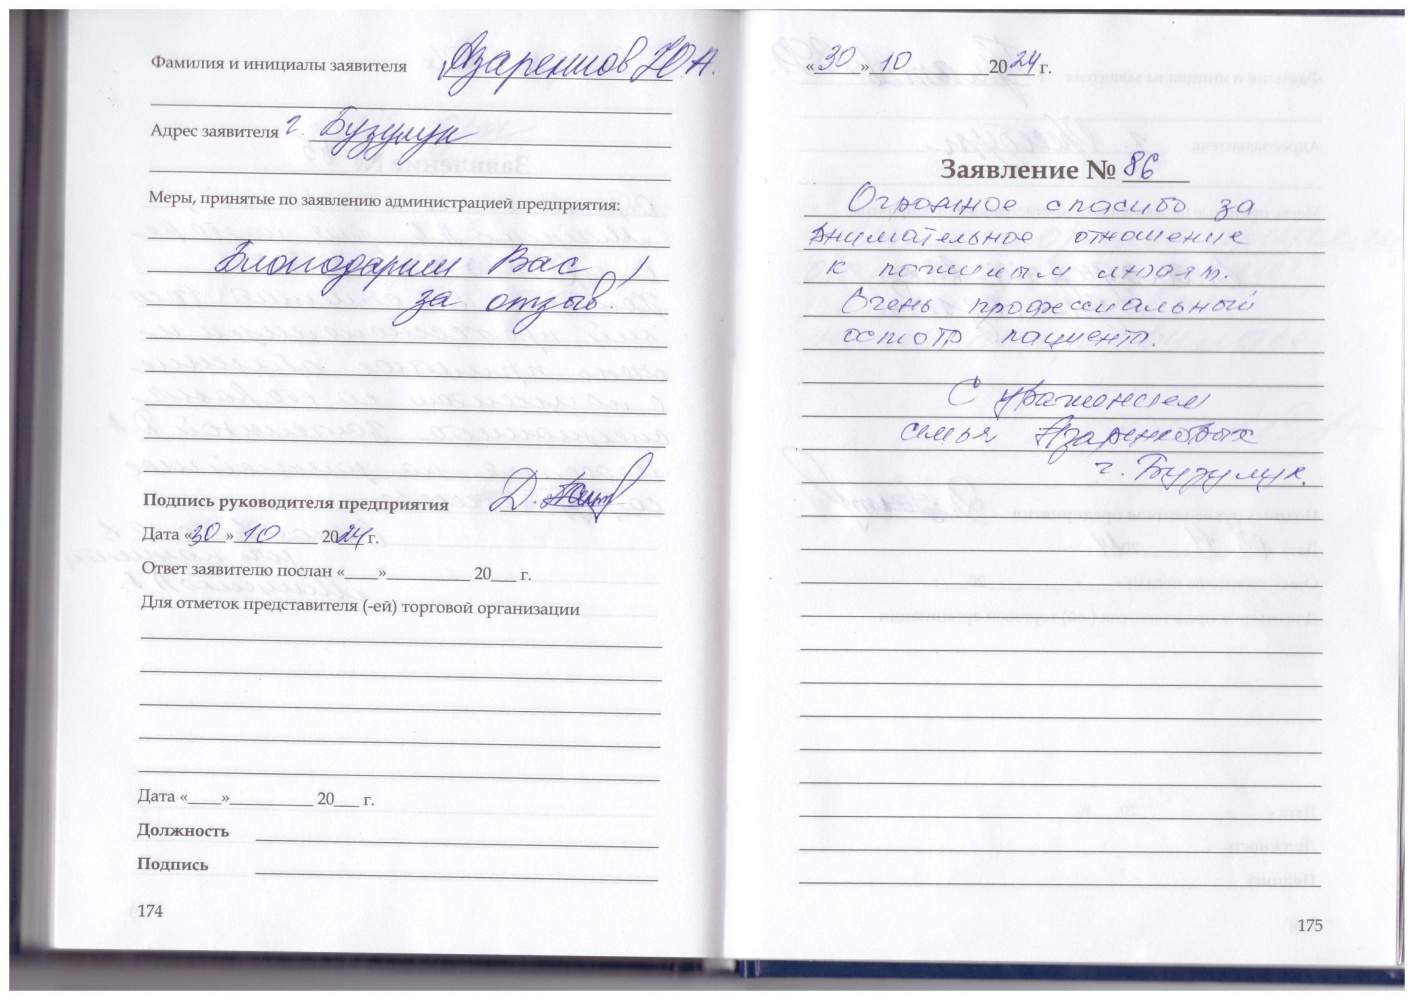 Фамилия и инициалы заявителя Азаренков Ю.А.
Адрес заявителя г. Бузулук
Меры, принятые по заявлению администрацией предприятия:
Благодарим Вас
за отзыв!
Подпись руководителя предприятия Д.
Дата «30» 10 2024 г.
Ответ заявителю послан «____»__________ 20___ г.
Для отметок представителя (-ей) торговой организации
Дата «____»__________ 20___ г.
Должность
Подпись
174
«30» 10 2024 г.
Заявление № 86
Огромное спасибо за
внимательное отношение
к пожилым людям.
Очень профессиальный
осмотр пациента.
С уважением
семья Азаренковых
г. Бузулук.
175